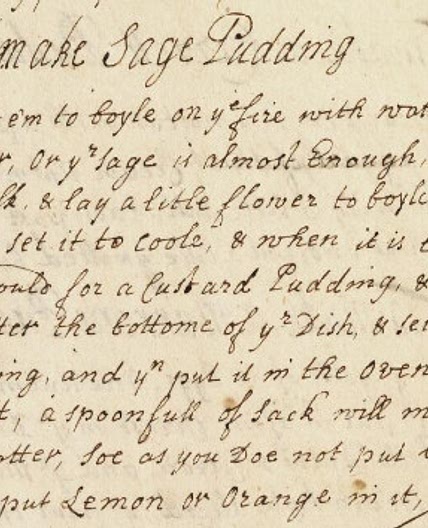 make Sage Pudding
em to boyle on yᵉ fire with wat
r, Or yʳ sage is almost Enough,
lk, & lay a litle flower to boyle
set it to coole, & when it is c
ould for a Custard Pudding, &
tter the bottome of yʳ Dish, & se
ing, and yⁿ put it in the Oven
t, a spoonfull of Sack will m
tter, soe as you Doe not put
put Lemon or Orange in it,